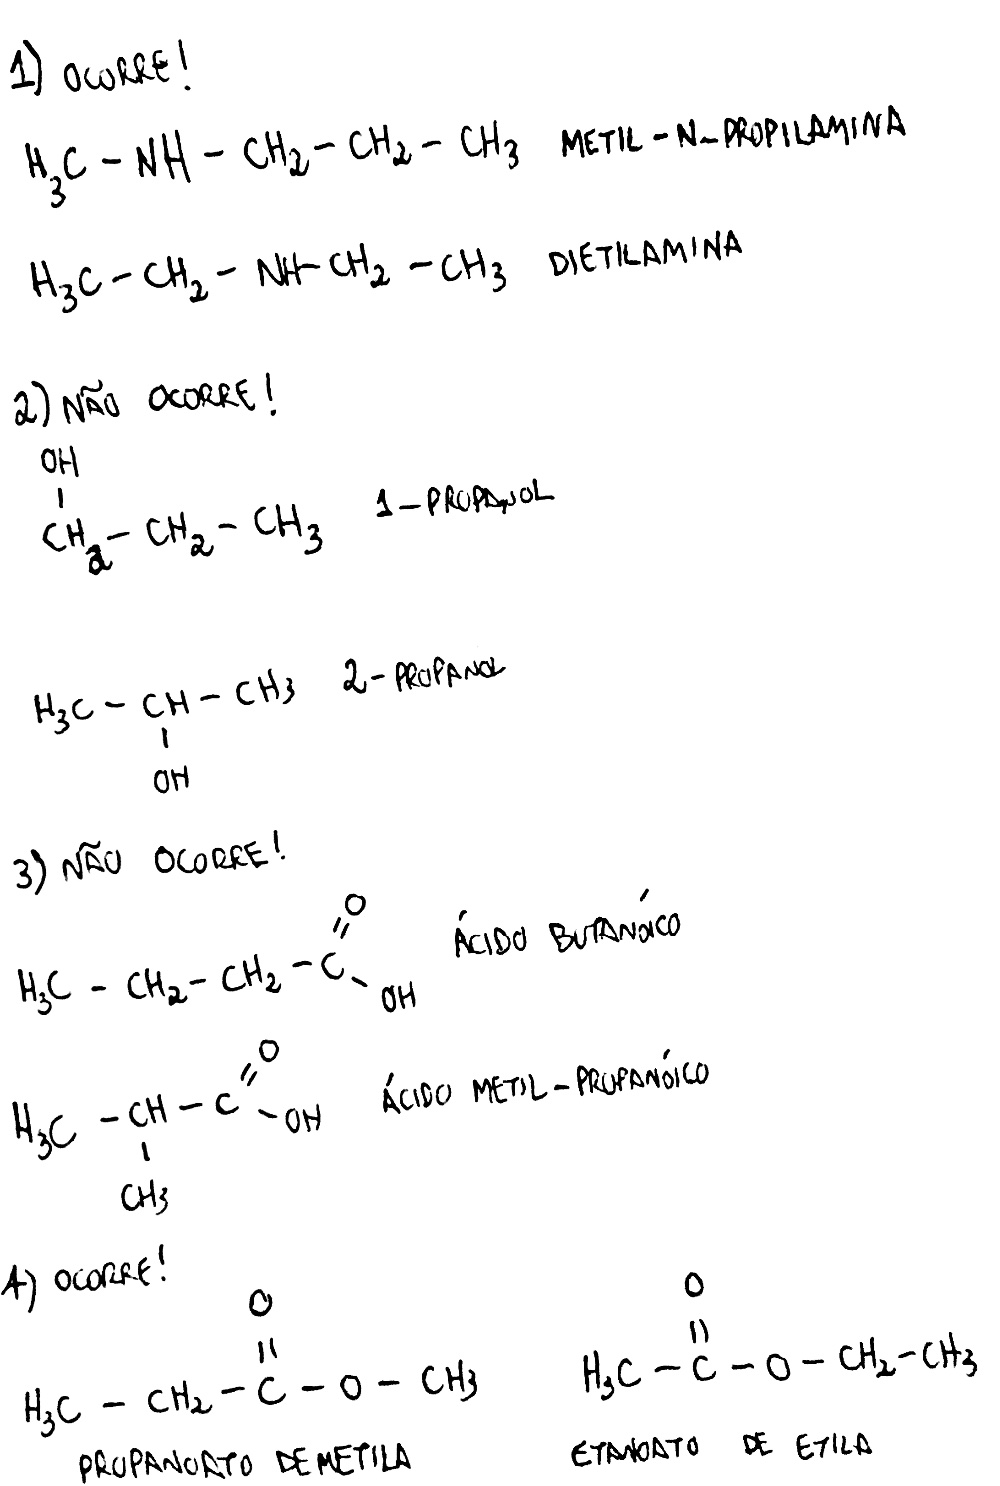 1) OCORRE!
H3C - NH - CH2 - CH2 - CH3 METIL - N - PROPILAMINA
H3C - CH2 - NH - CH2 - CH3 DIETILAMINA
2) NÃO OCORRE!
OH
|
CH2 - CH2 - CH3 1 - PROPANOL
H3C - CH - CH3 2 - PROPANOL
|
OH
3) NÃO OCORRE!
O
//
H3C - CH2 - CH2 - C ÁCIDO BUTANÓICO
\ OH
O
//
H3C - CH - C ÁCIDO METIL - PROPANÓICO
| \ OH
CH3
4) OCORRE!
O O
|| ||
H3C - CH2 - C - O - CH3 H3C - C - O - CH2 - CH3
PROPANOATO DE METILA ETANOATO DE ETILA